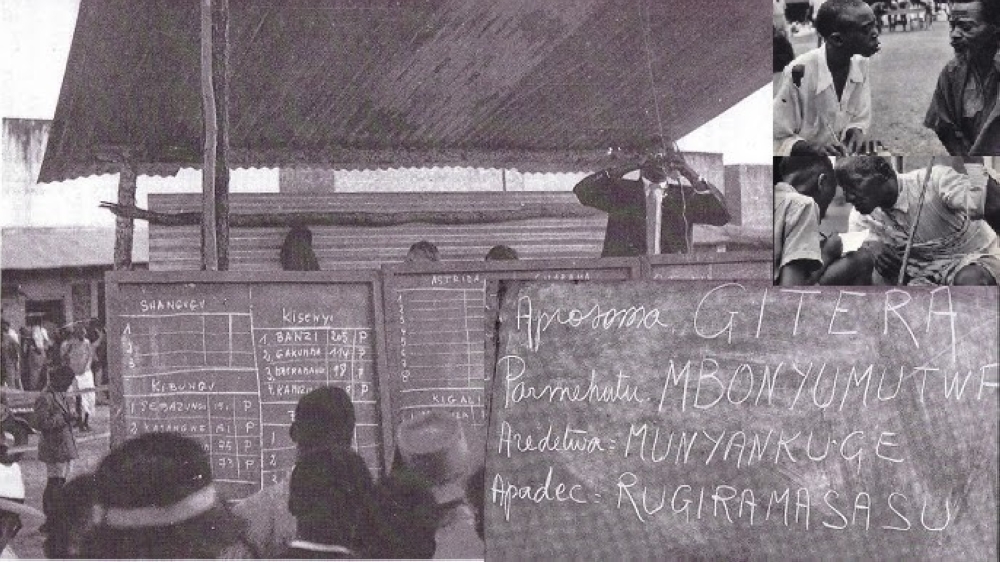 SHANGUGU
1
2
3
KIBUNGU
1 SEBAZUNGU P
2 P
75 P
73 P
Kisenyi
1. BANZI 205 P
2. GAKUMBA 114 P
3. 98 P
4. P
1
2
ASTRIDA
1
2
3
4
5
6
7
8
KIGALI
Aprosoma, GITERA
Parmehutu. MBONYUMUTWA
Aredetwa = MUNYANKUGE
Apadec = RUGIRAMASASU